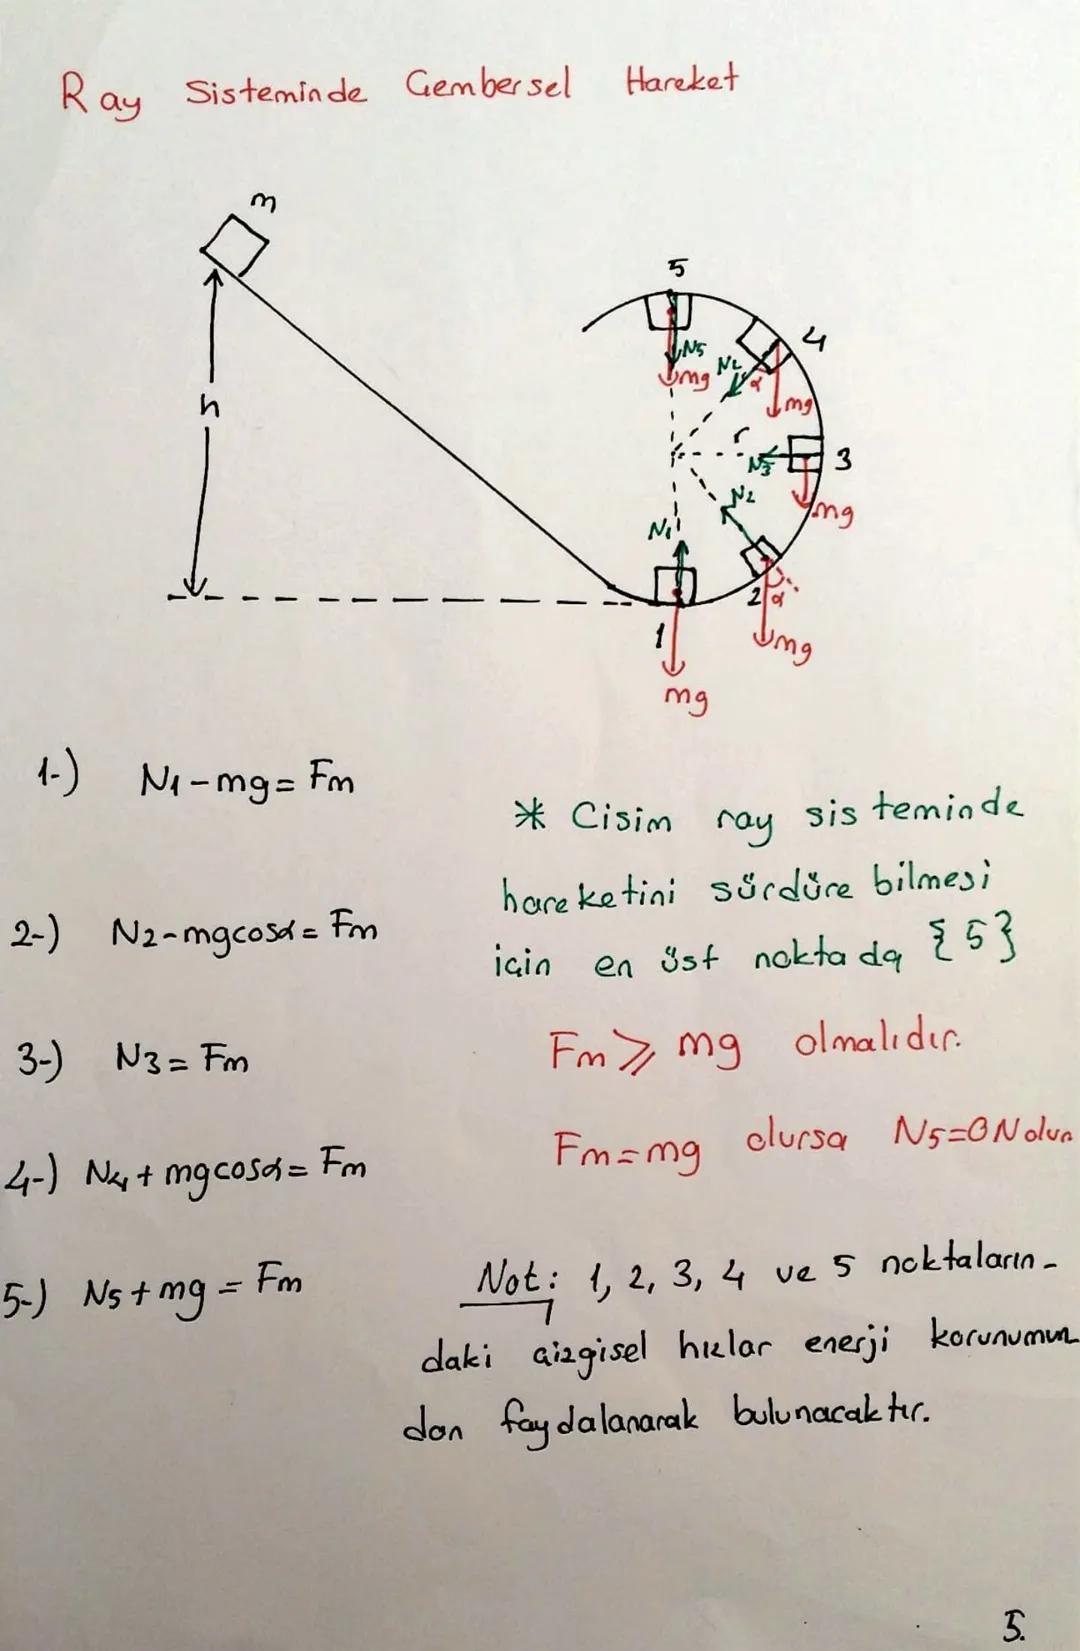 Ray Sisteminde Çembersel Hareket
m
h
5
N5
mg
4
N4
α
mg
r
3
N3
mg
N2
2
α
mg
N1
1
mg
1-) N1-mg = Fm
2-) N2-mgcosα = Fm
3-) N3 = Fm
4-) N4 + mgcosα = Fm
5-) N5 + mg = Fm
* Cisim ray sisteminde
hareketini sürdüre bilmesi
için en üst noktada {5}
Fm ⩾ mg olmalıdır.
Fm = mg olursa N5=0N olur
Not: 1, 2, 3, 4 ve 5 noktaların-
daki çizgisel hızlar enerji korunumun
dan faydalanarak bulunacaktır.
5.